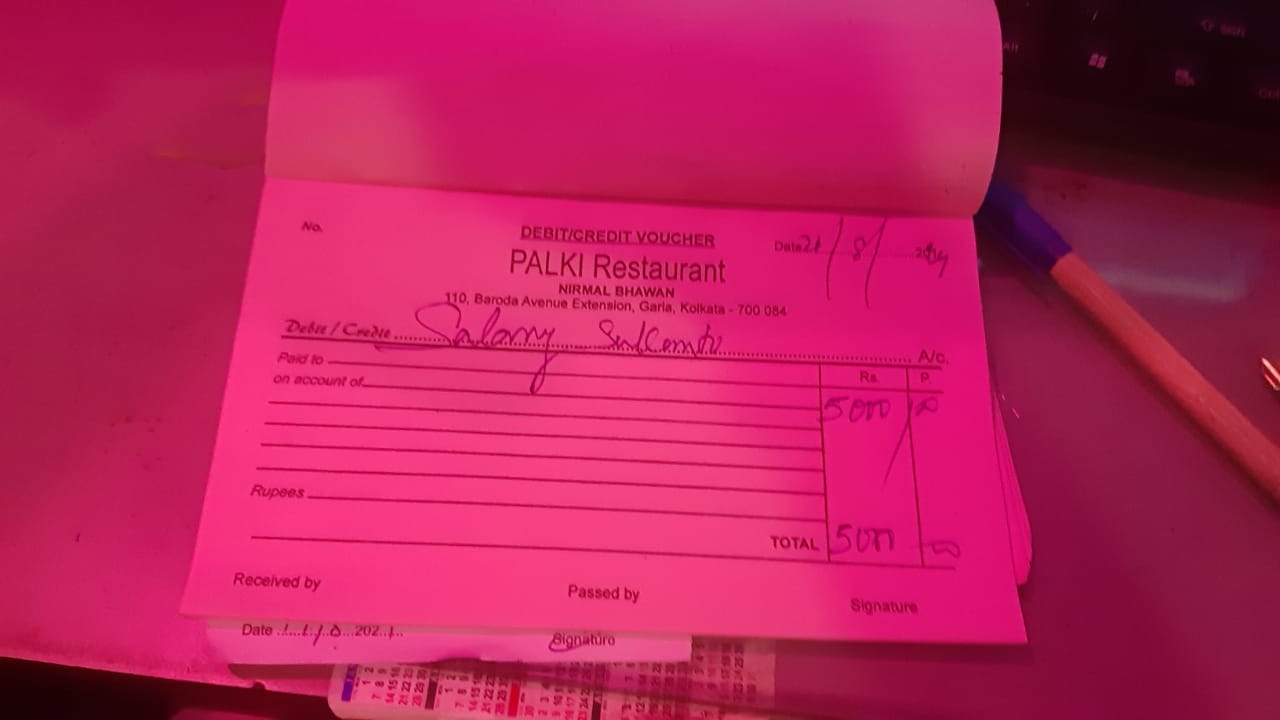 No.
DEBIT/CREDIT VOUCHER
Date 21/8/2024
PALKI Restaurant
NIRMAL BHAWAN
110, Baroda Avenue Extension, Garia, Kolkata - 700 084
Debit / Credit Salary A/c.
Paid to
Rs. P.
on account of
5000/00
Rupees
TOTAL 5000 00
Received by Passed by Signature
Date 202 Signature